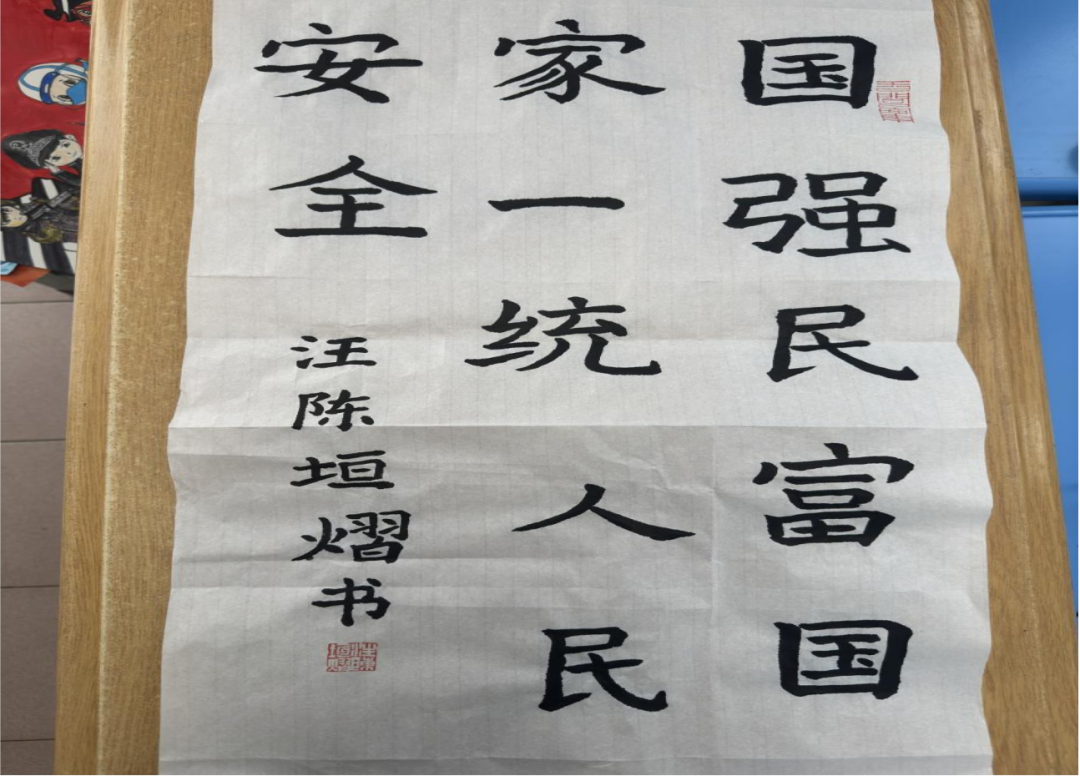 国强民富国
家一统人民
安全
汪陈垣熠书